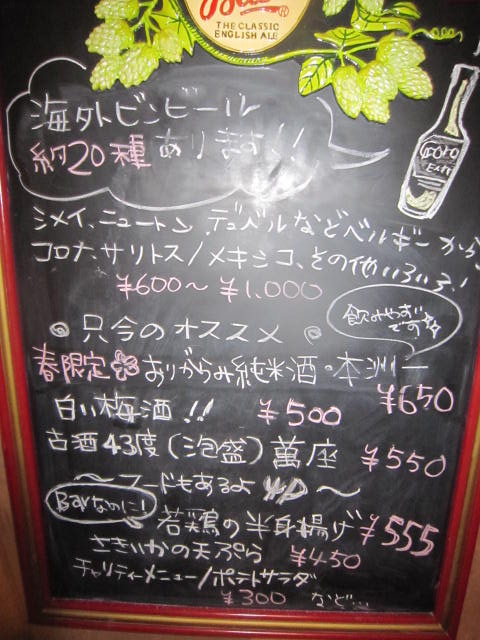 THE CLASSIC
ENGLISH ALE
海外ビンビール
約20種あります!!
シメイ、ニュートン、デュベルなどベルギーから
コロナ、サリトス/メキシコ、その他いろいろ!
¥600〜¥1,000
◎只今のオススメ◎
飲みやすい
です
春限定 おりがらみ純米酒・本洲一
¥650
白い梅酒!! ¥500
古酒43度(泡盛)萬座 ¥550
〜フードもあるよ〜
Barなのに!
若鶏の半身揚げ ¥555
さきいかの天ぷら ¥450
チャリティーメニュー/ポテトサラダ
¥300 など…